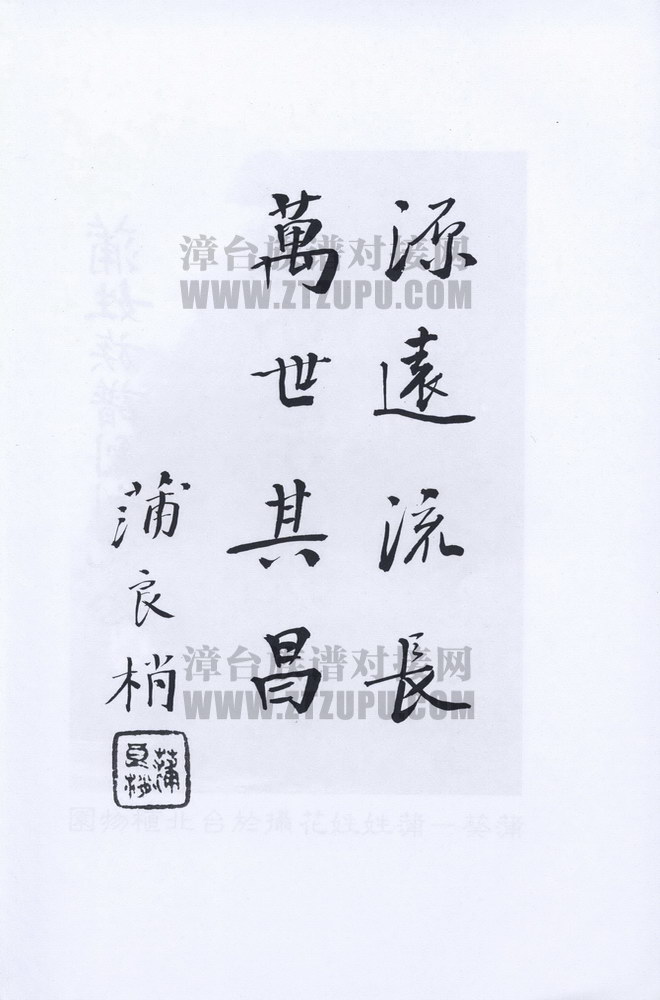 源遠流長
萬世其昌
蒲良梢
蒲良梢
漳台族谱对接网
WWW.ZTZUPU.COM
漳台族谱对接网
WWW.ZTZUPU.COM